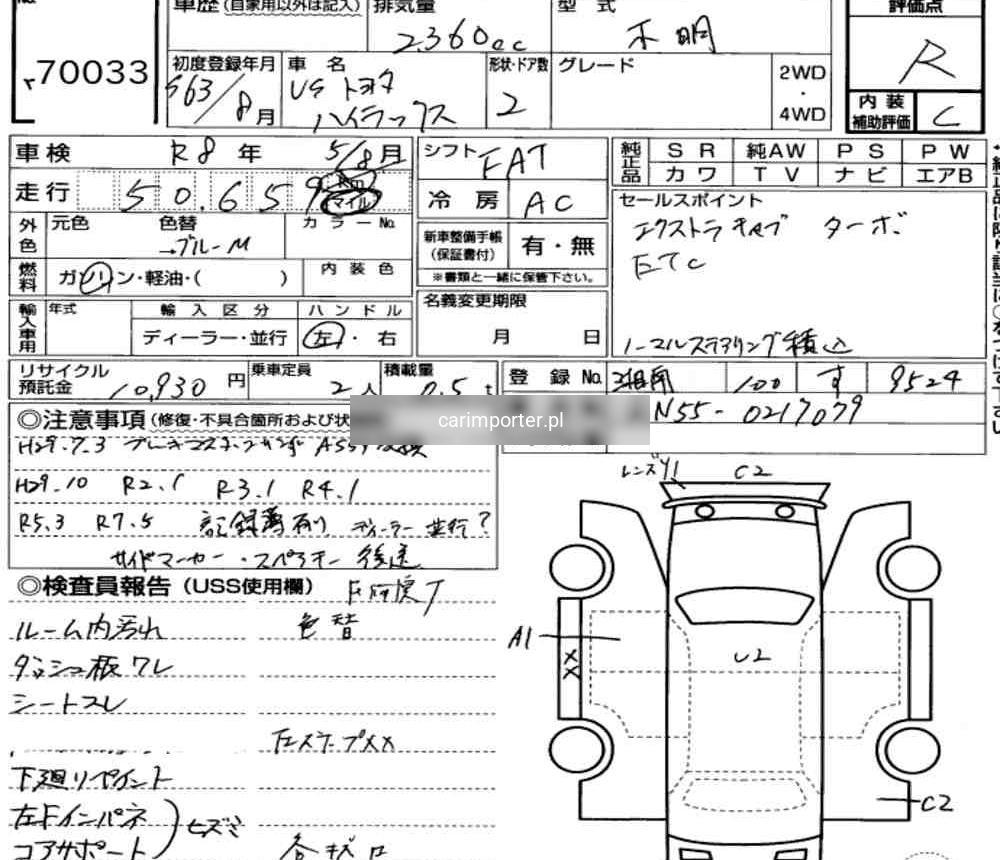 車歴 (自家用以外は記入) 排気量 型式 評価点
2360cc 不明 R
70033
初度登録年月 車名 形状・ドア数 グレード 2WD・4WD
S63/8月 US トヨタ ハイラックス 2
内装補助評価 C
車検 R8年 5/8月 シフト FAT
純正品 SR 純AW PS PW
カワ TV ナビ エアB
走行 50,659 Km マイル 冷房 AC
セールスポイント
エクストラキャブ ターボ
ETC
ノーマルステアリング積込
外色 元色 色替 カラーNo.
→ブルーM
新車整備手帳(保証書付) 有・無
※書類と一緒に保管下さい。
燃料 ガソリン・軽油・( ) 内装色
名義変更期限
月 日
輸入車用 年式 輸入区分 ハンドル
ディーラー・並行 左・右
リサイクル預託金 10,930円 乗車定員 2人 積載量 0.5t
登録No. 湘南 100 す 9524
carimporter.pl
N55-0217079
◎注意事項(修復・不具合箇所および状
H29.7.3 ブレーキマスターシリンダ ASSY交換
H29.10 R2.1 R3.1 R4.1
R5.3 R7.5 記録簿有り ディーラー並行?
サイドマーカー・スペアキー後送
◎検査員報告(USS使用欄)
ルーム内汚れ 色替
ダッシュ板ワレ
シートスレ
左ステップXX
下廻りペイント
左Fインパネ
コアサポート
ヒズミ
レンズY1 C2
A1 XX U2
C2